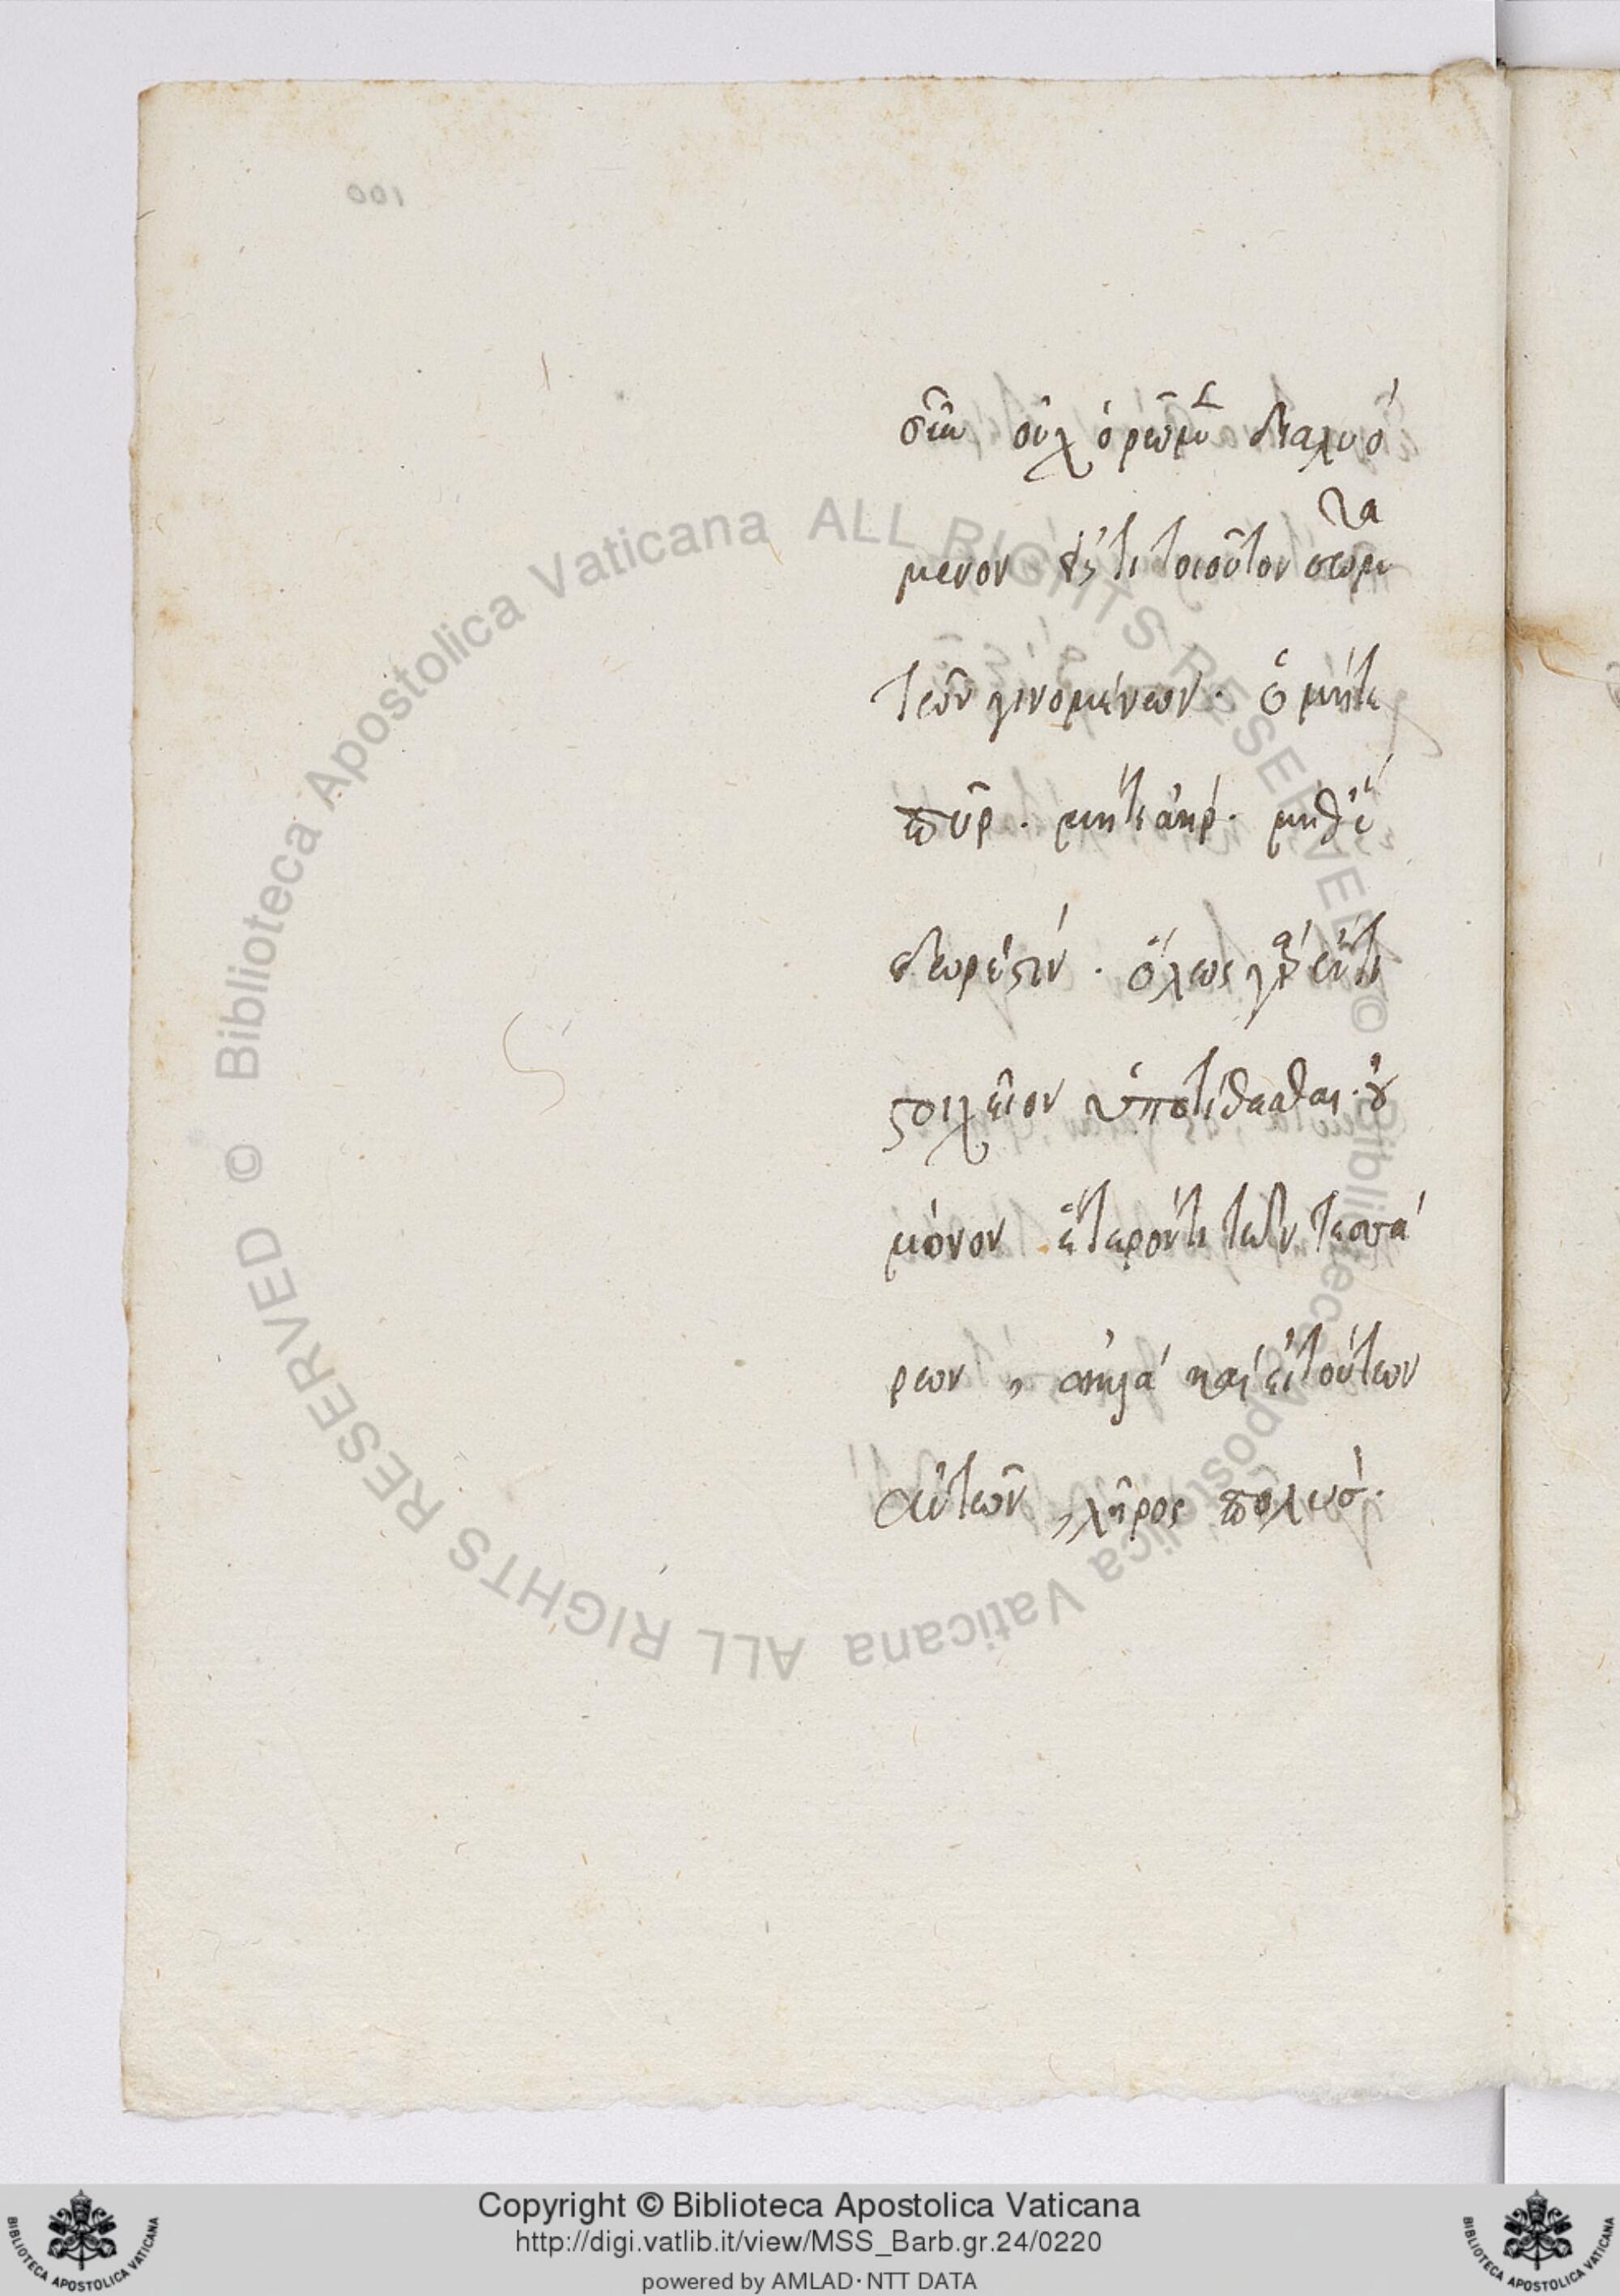 001
σται οὐχ ὁρῶμεν διαλυό
μενον εἴς τι τοιοῦτον σῶμα τὰ
τῶν γινομένων. ὃ μήτε
πῦρ. μήτε ἀήρ. μήθ' ἕ
τερόν ἐστιν. ὅλως γὰρ ἕν τι
στοιχεῖον ὑποτίθεσθαι. οὐ
μόνον ἕτερόν τι τῶν τεσσά
ρων, ἀλλὰ καὶ εἰ τούτων
αὐτῶν, λῆρος πολύσ.
© Biblioteca Apostolica Vaticana ALL RIGHTS RESERVED © Biblioteca Apostolica Vaticana ALL RIGHTS RESERVED
Copyright © Biblioteca Apostolica Vaticana
http://digi.vatlib.it/view/MSS_Barb.gr.24/0220
powered by AMLAD·NTT DATA
BIBLIOTECA APOSTOLICA VATICANA
BIBLIOTECA APOSTOLICA VATICANA